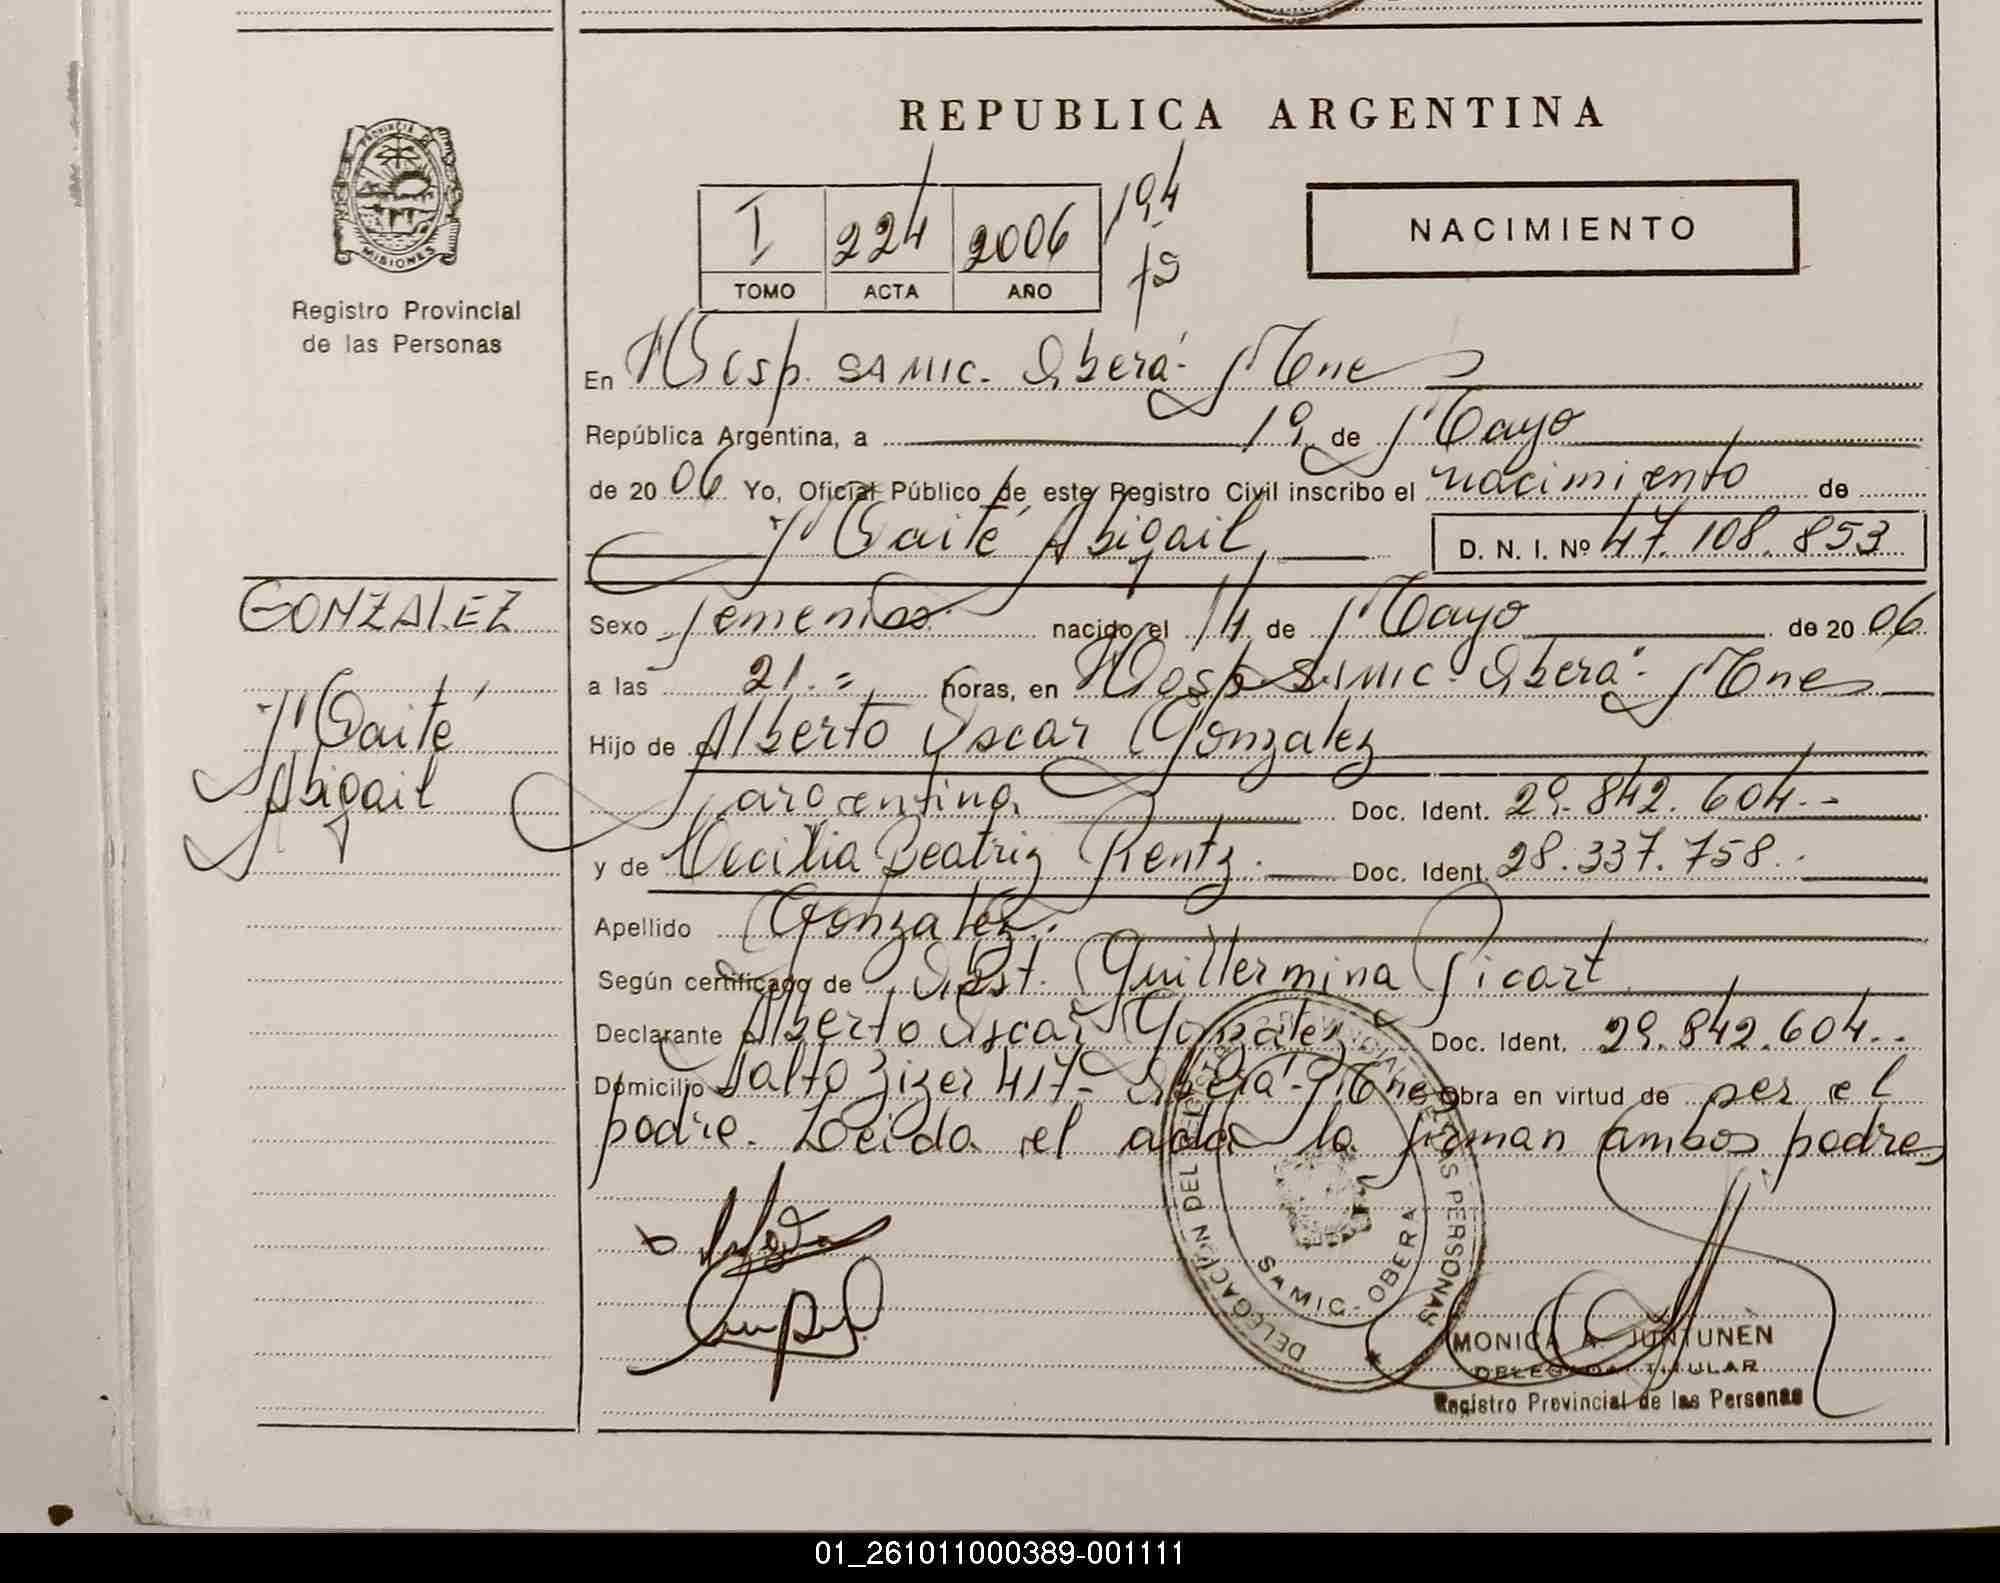 REPUBLICA ARGENTINA
PROVINCIA DE
MISIONES
Registro Provincial
de las Personas
I 224 2006
TOMO ACTA AÑO
194
NACIMIENTO
En Hosp. SAMIC. Oberá- Mnes
República Argentina, a 19 de Mayo
de 2006 Yo, Oficial Público de este Registro Civil inscribo el nacimiento de
Maité Abigail, D. N. I. Nº 47.108.853
GONZALEZ
Maité
Abigail
Sexo femenino nacido el 14 de Mayo de 2006
a las 21.= horas, en Hosp SAMIC- Oberá- Mnes
Hijo de Alberto Oscar Gonzalez
argentina Doc. Ident. 29.842.604.-
y de Cecilia Beatriz Rentz. Doc. Ident. 28.337.758.-
Apellido Gonzalez.
Según certificado de Obst. Guillermina Picart
Declarante Alberto Oscar Gonzalez Doc. Ident. 29.842.604.-
Domicilio Salto 417- Oberá- Mnes Obra en virtud de ser el
padre. Leida el acta la firman ambos padres
DELEGACION DEL REGISTRO PROVINCIAL DE LAS PERSONAS
SAMIC - OBERA
MONICA A. JUNTUNEN
DELEGADA TITULAR
Registro Provincial de las Personas
01_261011000389-001111